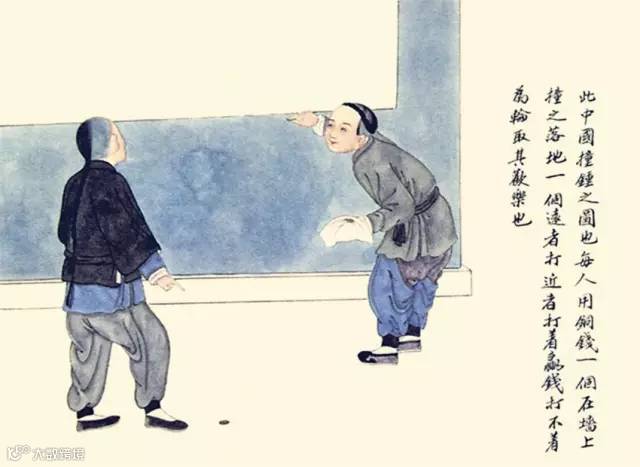 此中國撞鍾之圖也每人用銅錢一個在墻上
撞之落地一個遠者打近者打着贏錢打不着
為輸取其歡樂也
大數跨境